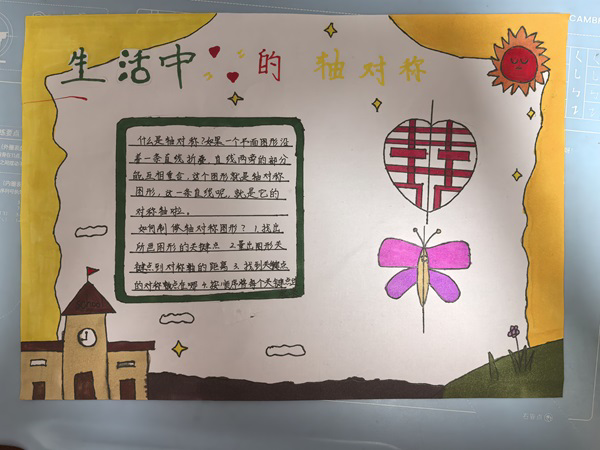 生活中的轴对称
什么是轴对称?如果一个平面图形沿
某一条直线折叠,直线两旁的部分
能互相重合,这个图形就是轴对称
图形,这一条直线呢,就是它的
对称轴啦。
如何制做轴对称图形? 1.找出
所画图形的关键点 2.量出图形关
键点到对称轴的距离 3.找到关键点
的对称点在哪 4.按顺序将每个关键点
CAMBR